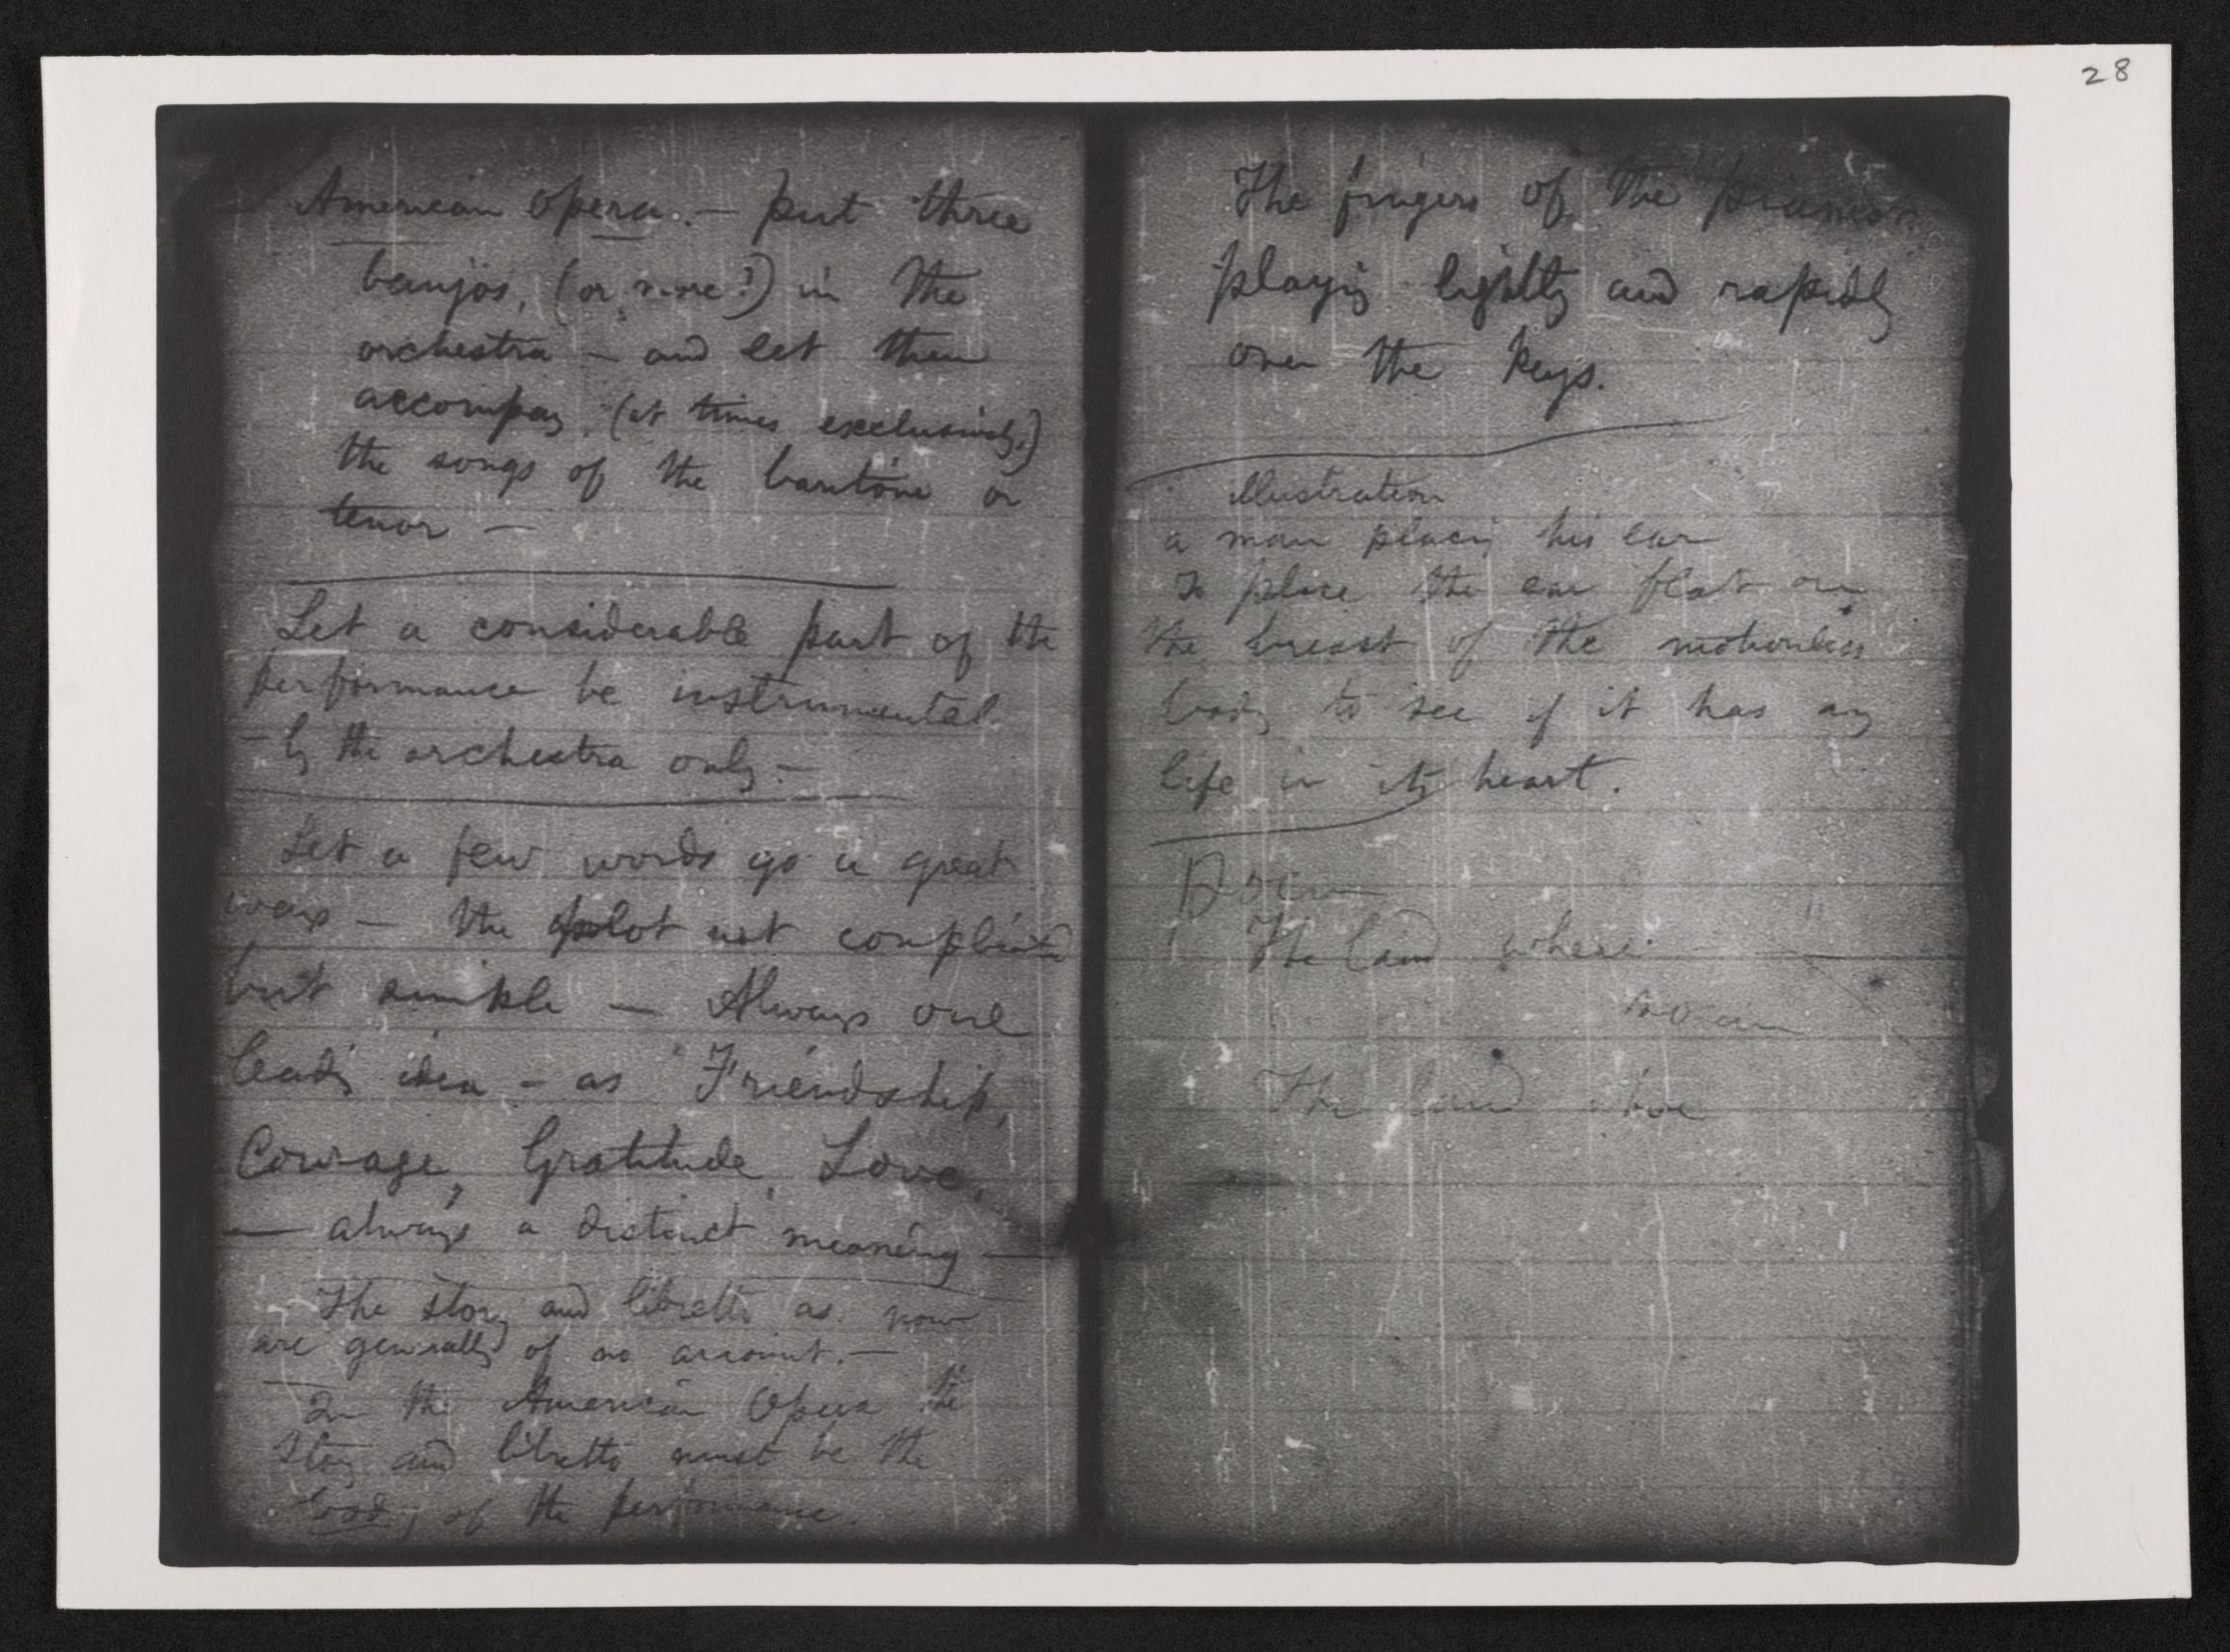 28
American Opera. — put three
banjos, (or more?) in the
orchestra — and let them
accompany (at times exclusively,)
the songs of the baritone or
tenor —
Let a considerable part of the
performance be instrumental
— by the orchestra only. —
Let a few words go a great
ways — the plot not complicated
but simple — Always one
leading idea — as Friendship,
Courage, Gratitude, Love,
— always a distinct meaning —
The story and libretto as now
are generally of no account. —
In the American Opera the
story and libretto must be the
body of the performance.
The fingers of the pianist
playing lightly and rapidly
over the keys.
illustration
a man placing his ear
to place the ear flat on
the breast of the motionless
body to see if it has any
life in its heart.
The land where
The land where